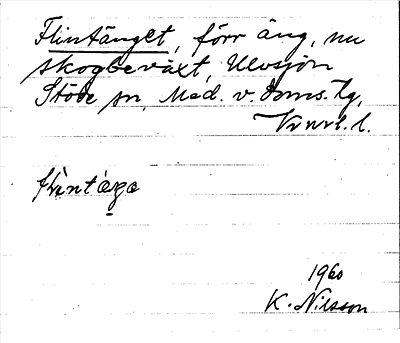 Flintänget, förr äng, nu
skogbeväxt, Ulvsjön
Stöde sn, Med. v. Doms. Tg,
Vnrl. l.
flintäŋa
1960
K. Nilsson